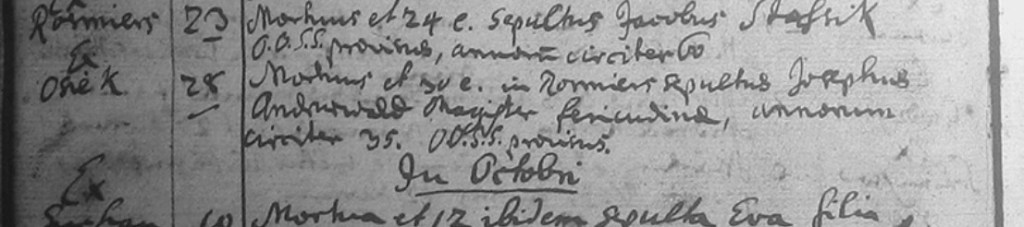 Rormiers 23 Mortuus et 24 e. sepultus Jacobus Stafsik
O.O.S.S. provisus, annorum circiter 60
Ex
Osek 28 Mortuus et 30 e. in Rormiers sepultus Josephus
Magister, annorum
circiter 35. O.O.S.S. provisus.
In Octobri
Ex
10 Mortua et 12 ibidem sepulta Eva filia